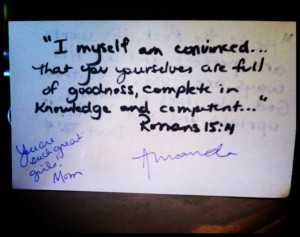 "I myself am convinced...
that you yourselves are full
of goodness, complete in
knowledge and competent..."
Romans 15:14
You are
such great
girls!
Mom
Amanda